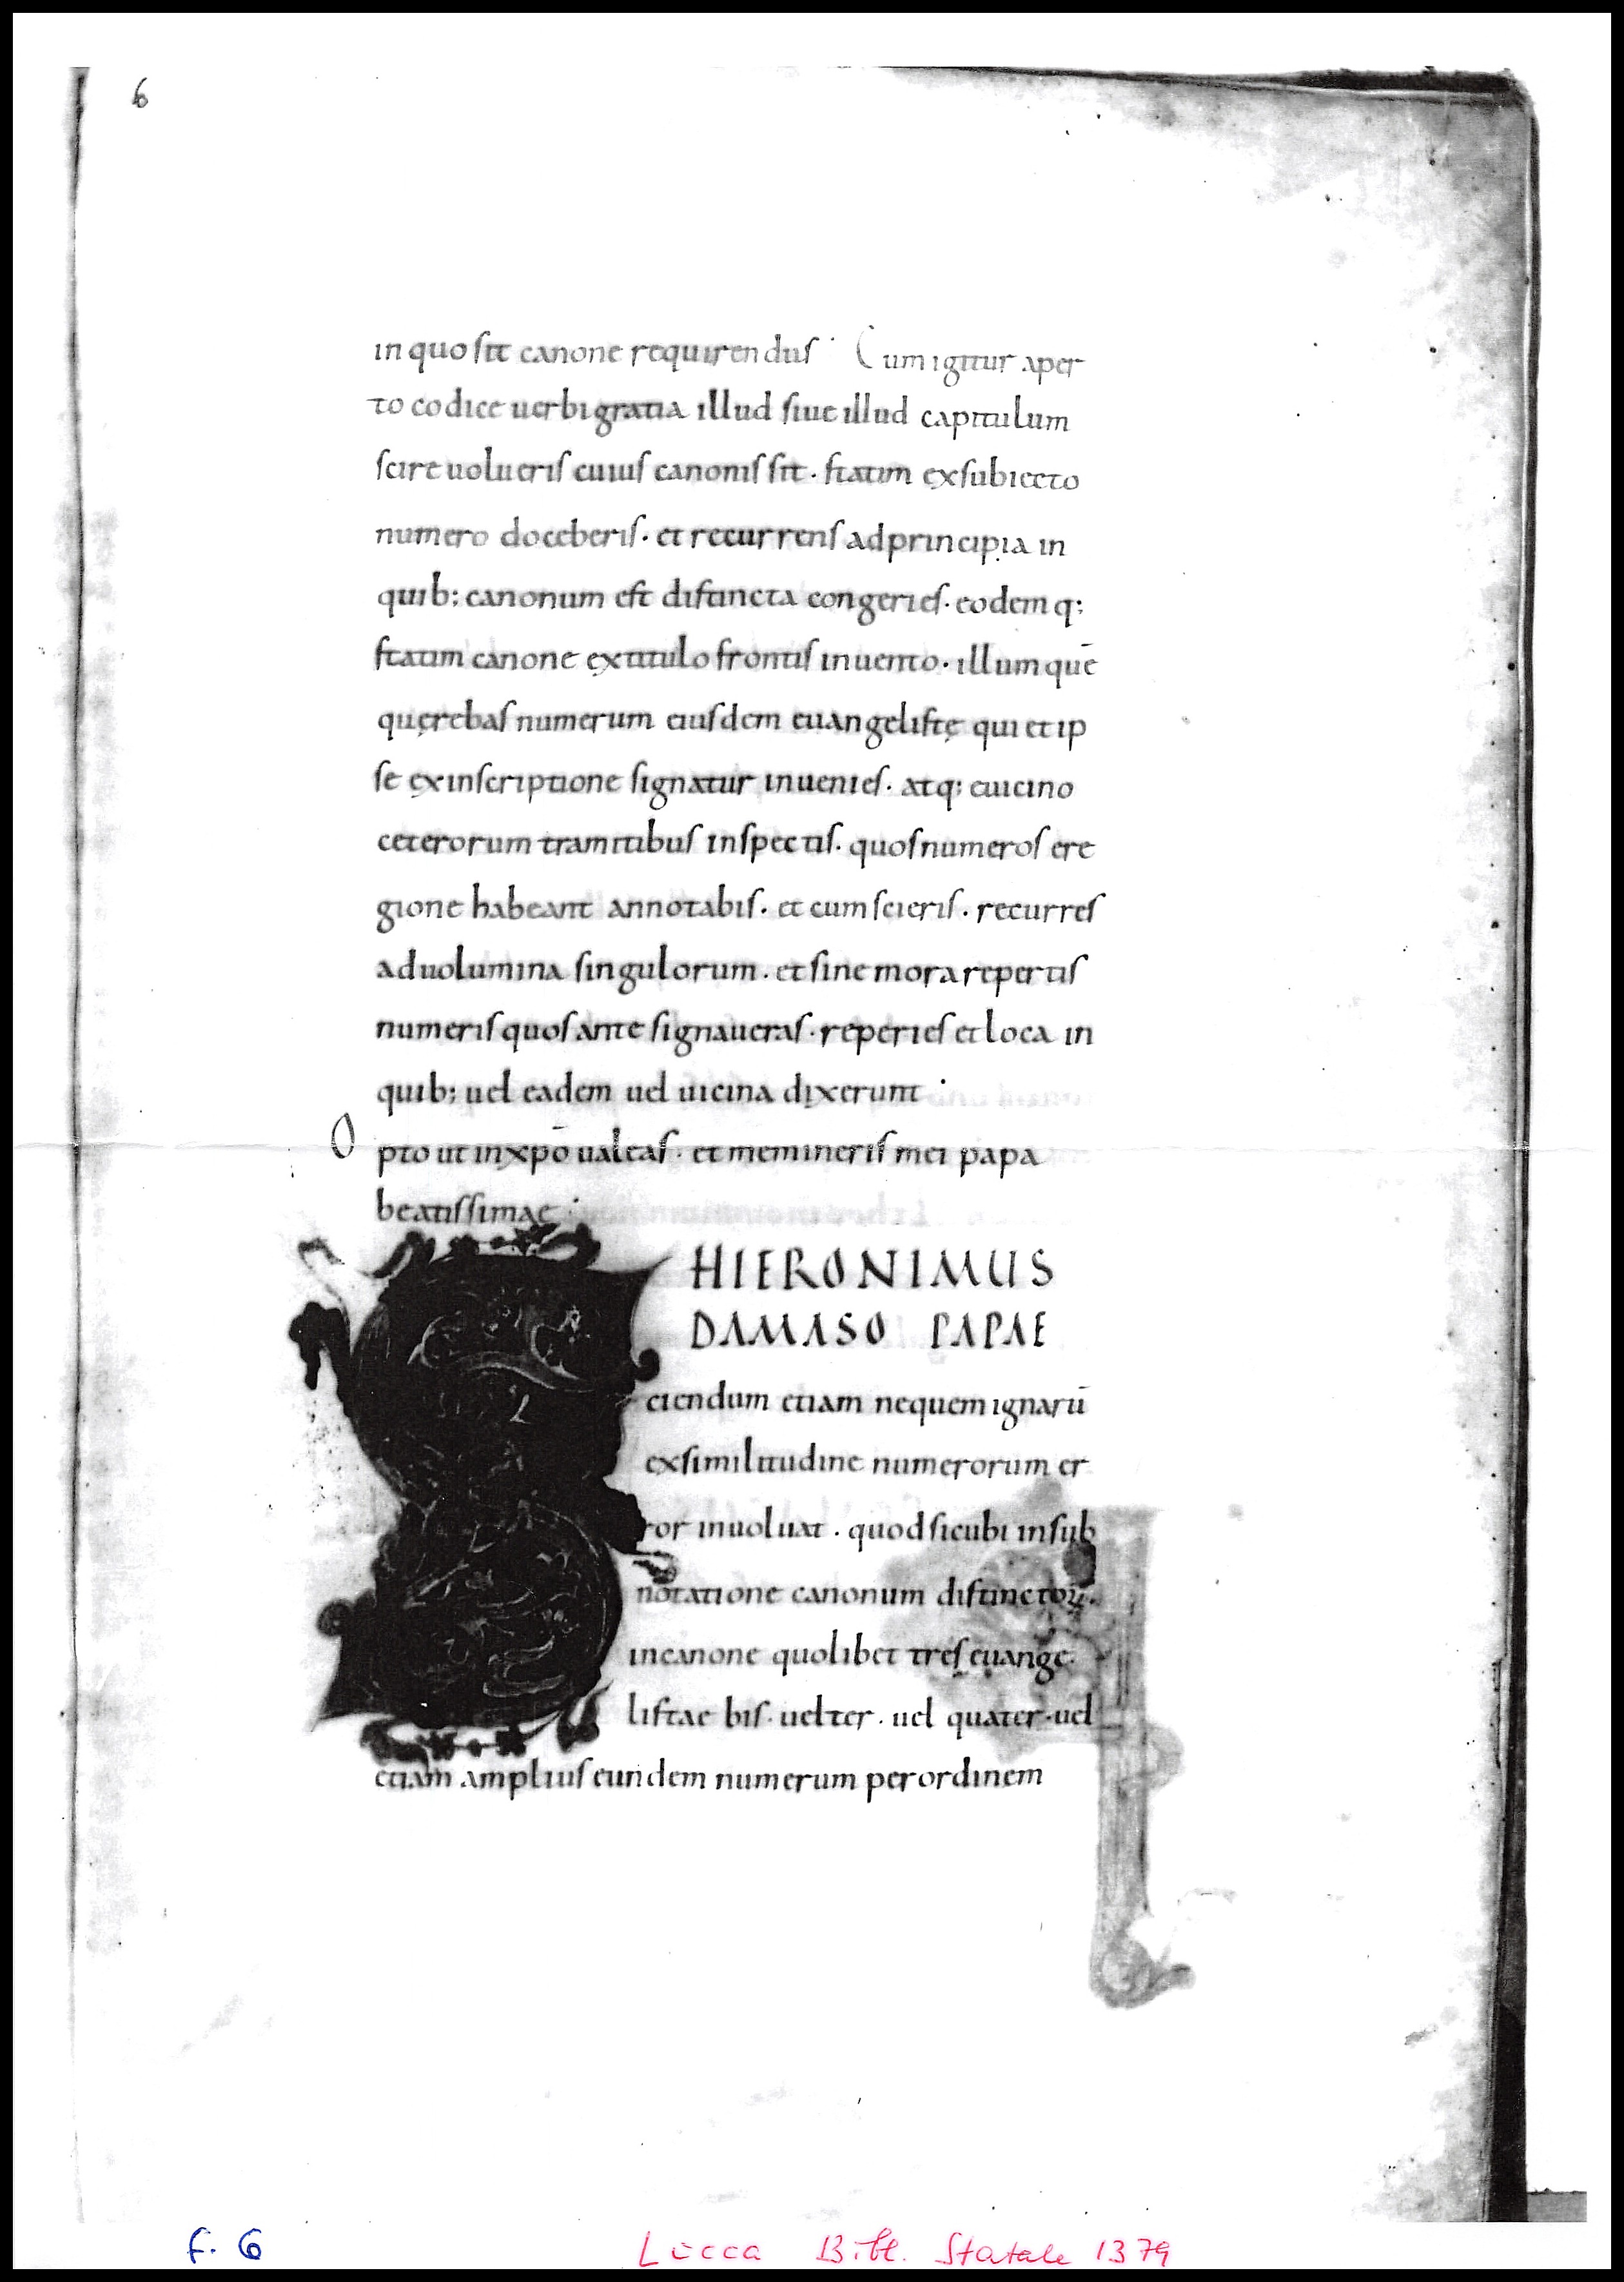 6
in quo sit canone requirendus· Cum igitur aper
to codice uerbi gratia illud siue illud capitulum
scire uolueris cuius canonis sit· statim ex subiecto
numero doceberis· et recurrens ad principia in
quib; canonum est distincta congeries· eodemq;
statim canone ex titulo frontis inuento· illum quē
quęrebas numerum eiusdem euangelistę qui et ip
se ex inscriptione signatur inuenies· atq; euicino
ceterorum tramitibus inspectis· quos numeros ere
gione habeant annotabis· et cum scieris· recurres
ad uolumina singulorum· et sine mora repertis
numeris quos ante signaueras· reperies et loca in
quib; uel eadem uel uicina dixerunt·
Opto ut in xpō ualeas· et memineris mei papa
beatissimae·
HIERONIMUS
DAMASO PAPAE
Sciendum etiam nequem ignarū
ex similitudine numerorum er
ror inuoluat· quod sicubi in sub
notatione canonum distinctoꝝ·
in canone quolibet tres euange
listae bis· uel ter· uel quater· uel
etiam amplius eundem numerum per ordinem
f. 6
Lucca Bibl. Statale 1379